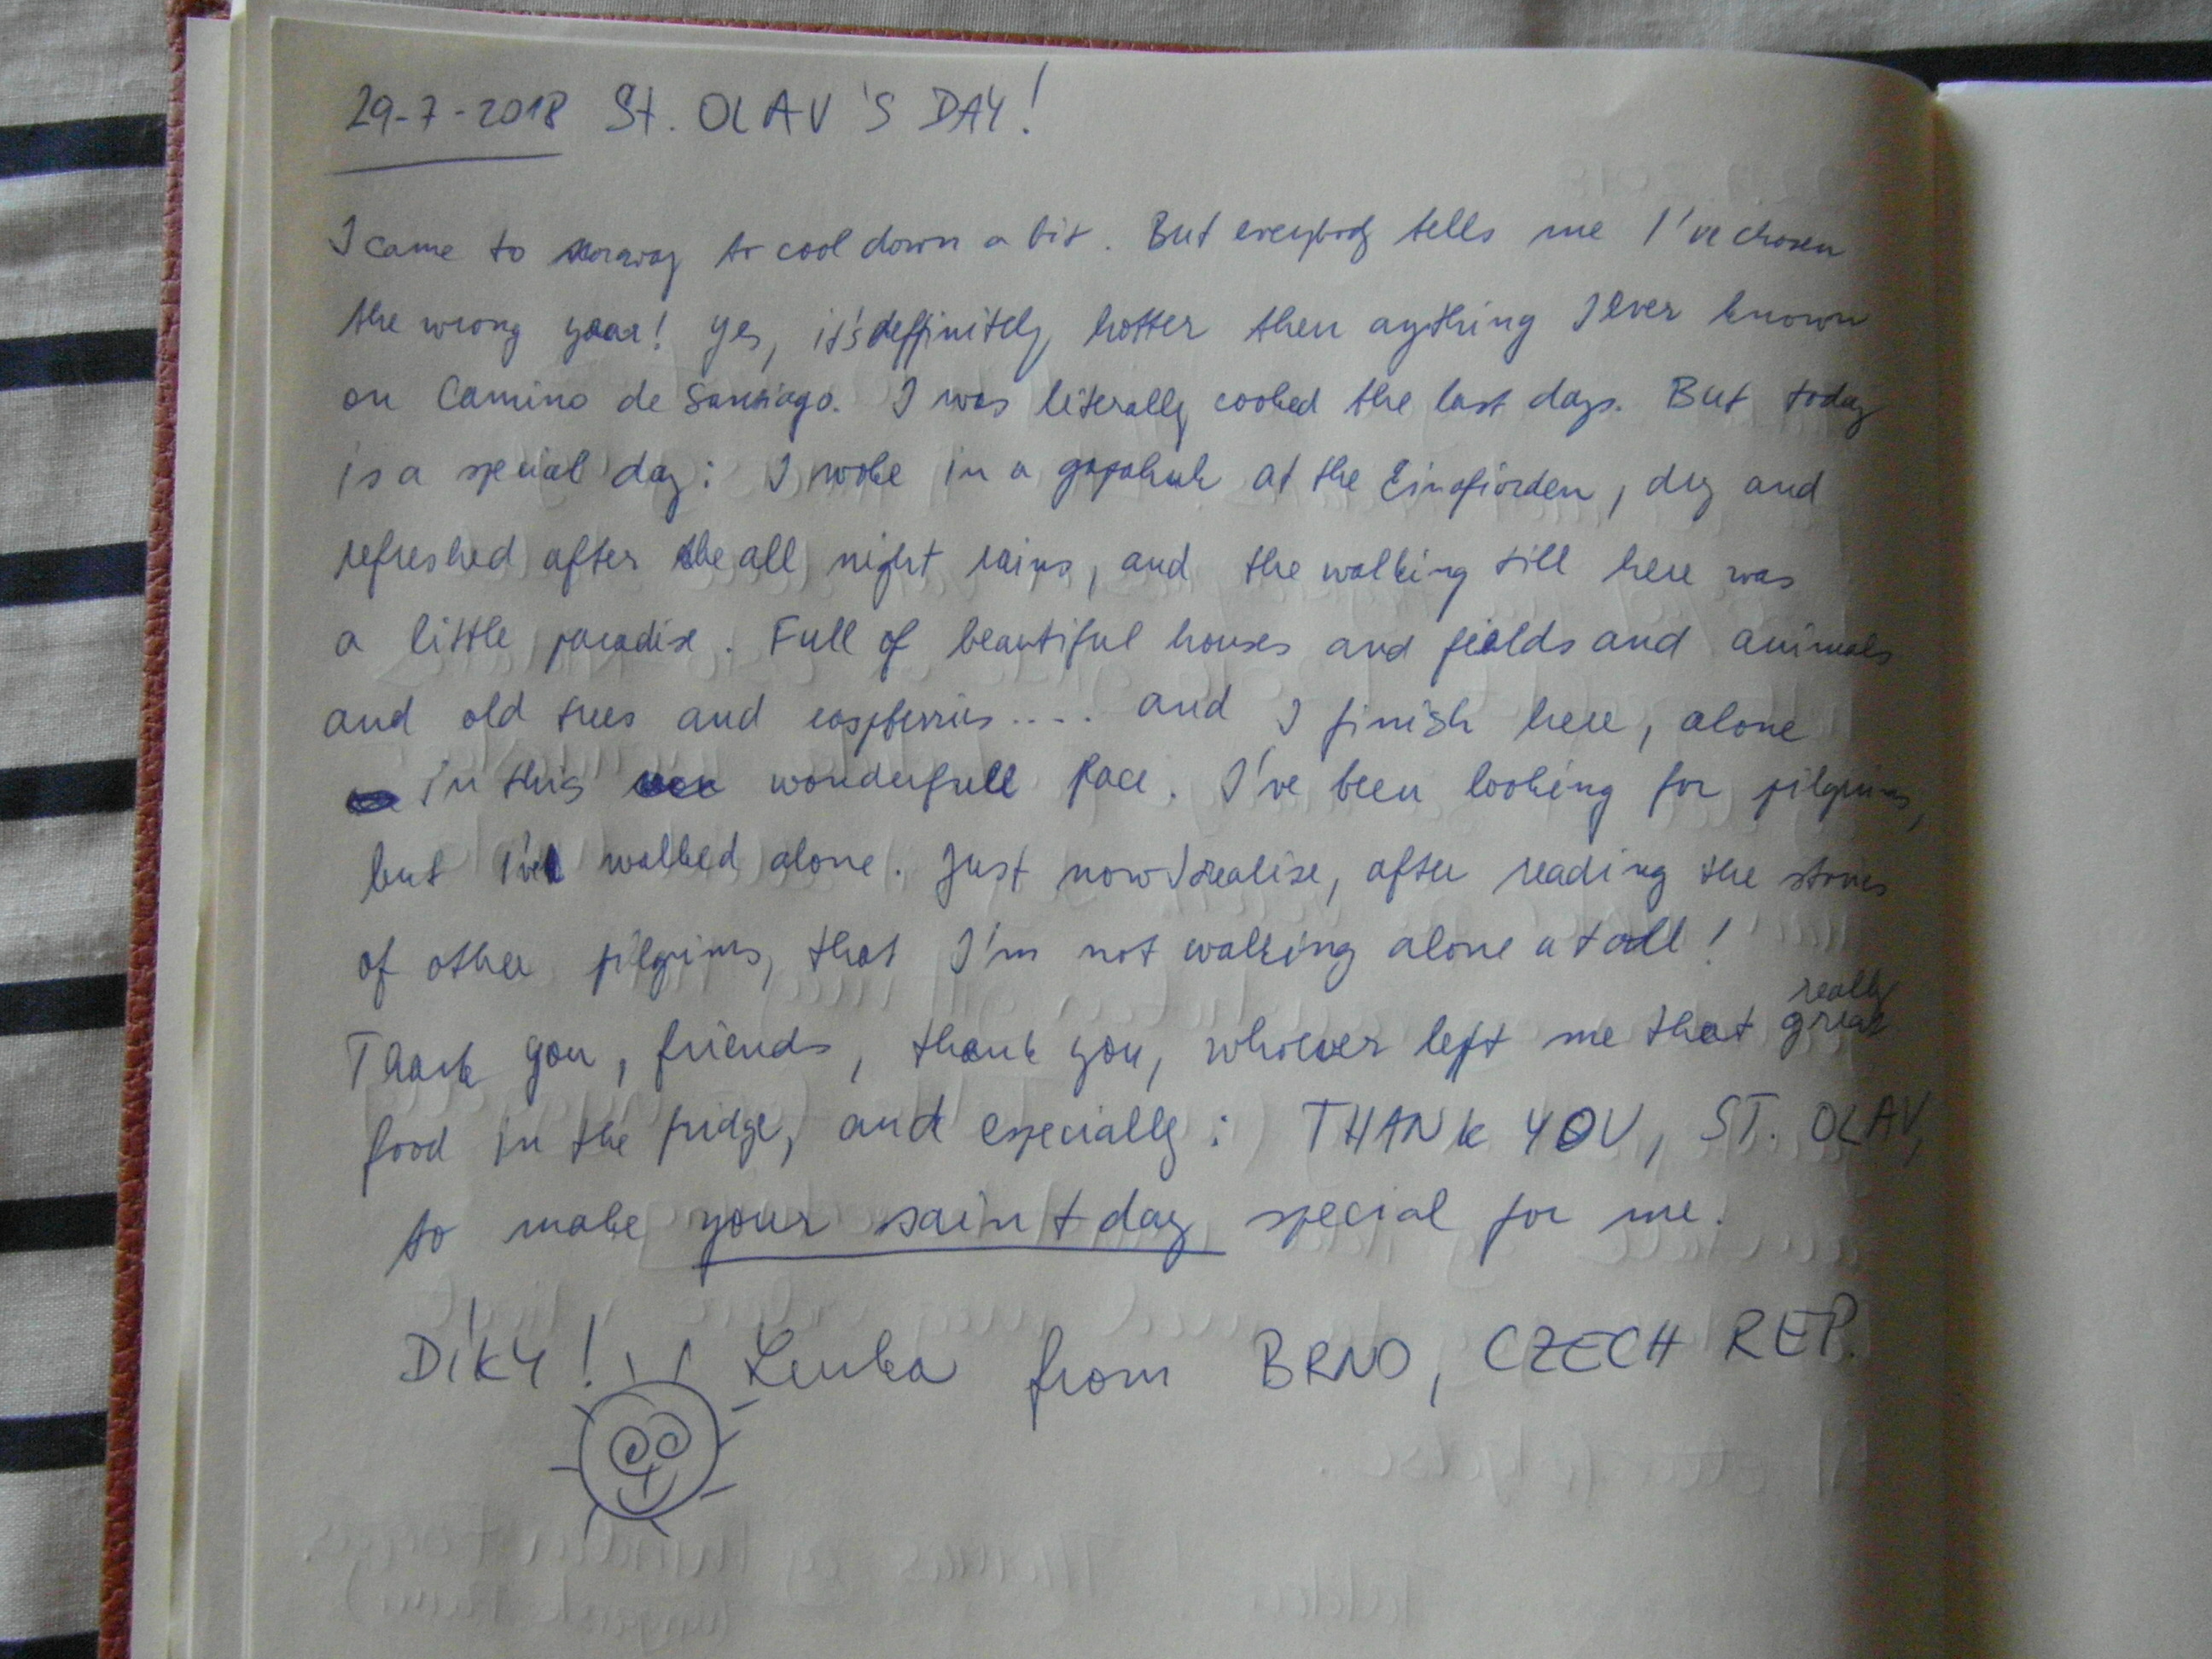 29-7-2018 St. OLAV'S DAY!
I came to Norway to cool down a bit. But everybody tells me I've chosen
the wrong year! Yes, it's deffinitely hotter then anything I ever known
on Camino de Santiago. I was literally cooked the last days. But today
is a special day: I woke in a gapahuk at the Einafjorden, dry and
refreshed after the all night rains, and the walking till here was
a little paradise. Full of beautiful houses and fields and animals
and old trees and raspberries.... and I finish here, alone
in this wonderfull place. I've been looking for pilgrims,
but I've walked alone. Just now I realise, after reading the stories
of other pilgrims, that I'm not walking alone at all!
really
Thank you, friends, thank you, whoever left me that great
food in the fridge, and especially: THANK YOU, ST. OLAV,
to make your saint day special for me.
DÍKY! Lenka from BRNO, CZECH REP.